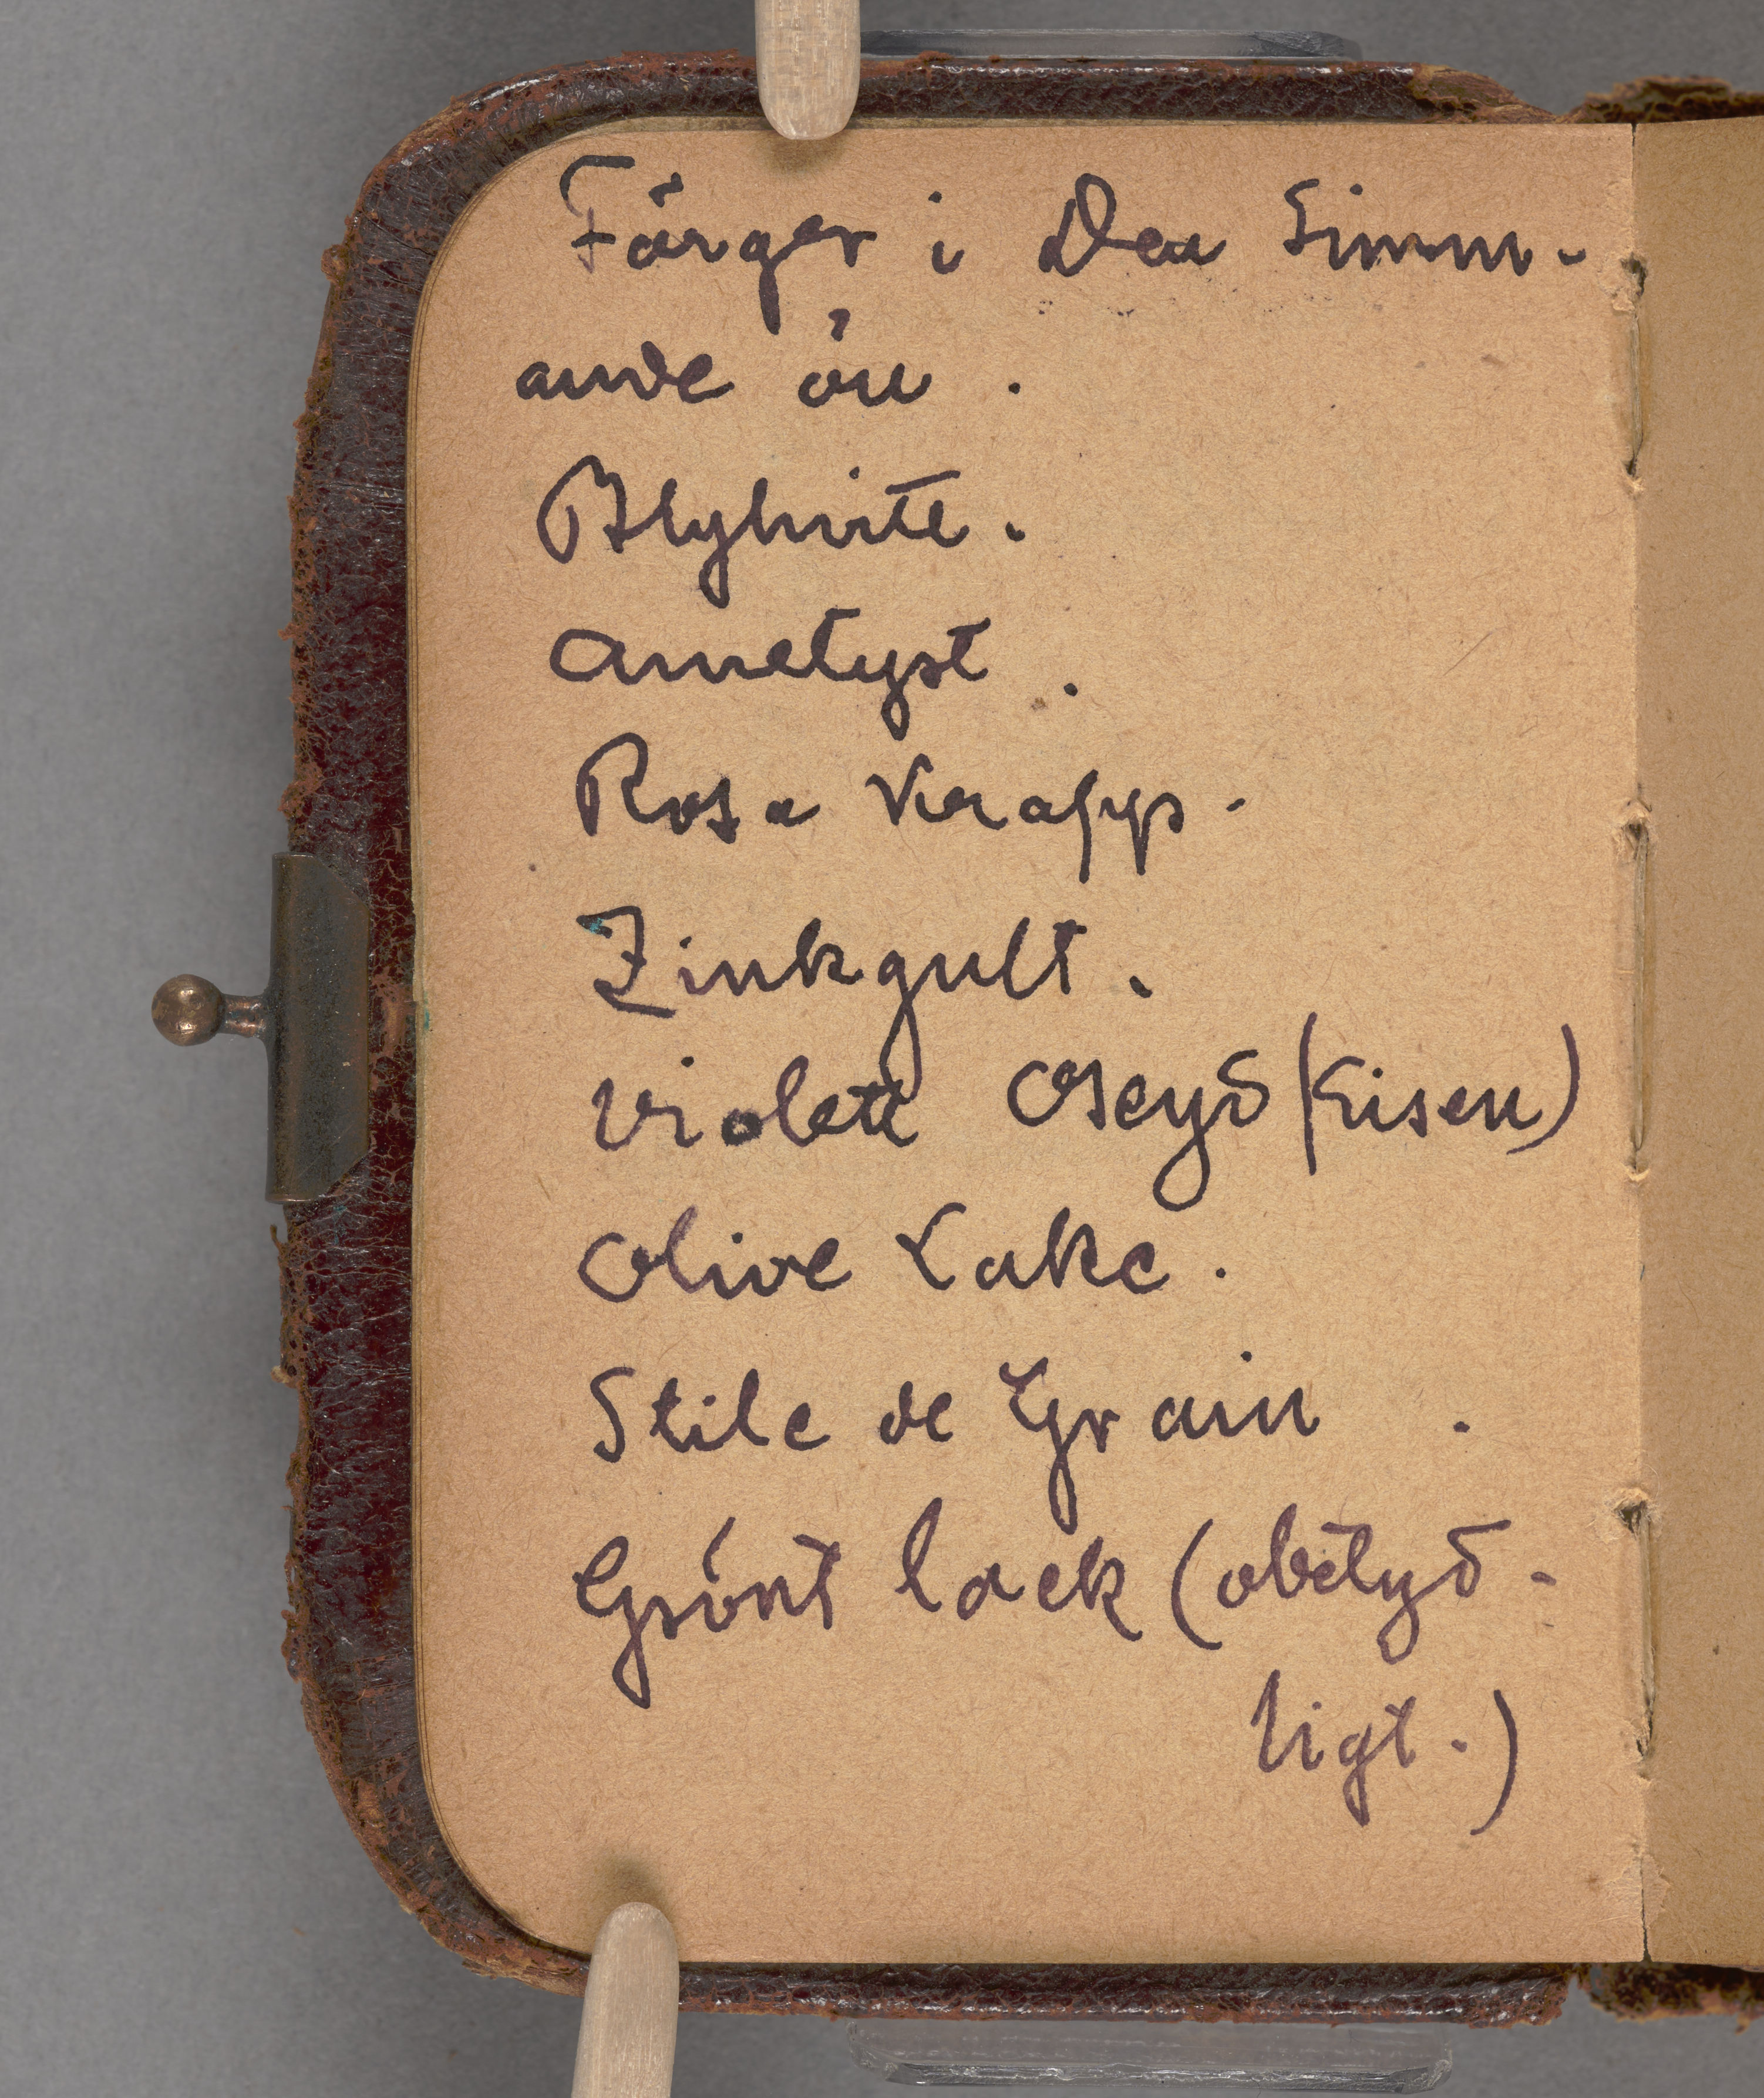 Färger i Den Simm-
ande ön.
Blyhvitt.
Ametyst.
Rosa Krapp.
Zinkgult.
Violett Oxyd (Eisen)
Olive Lake.
Stile de Grain.
Grönt lack (obetyd-
ligt.)